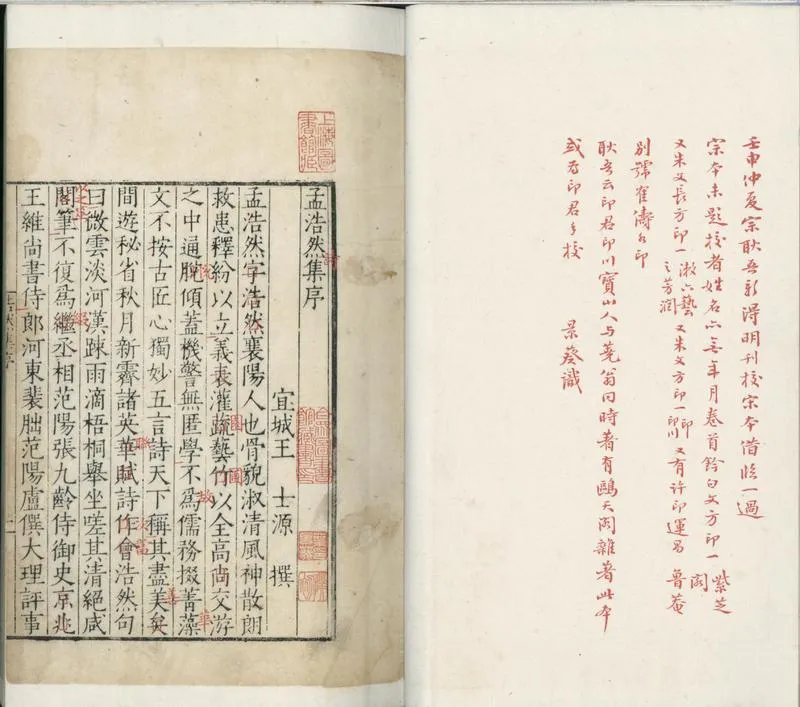 壬申仲夏宗耿吾新得明刊校宋本借临一過
宗本未題校者姓名亦無年月卷首鈐白文方印一紫芝閣
又朱文長方印一漱六藝之芳潤又朱文方印一印川又有許印運昌魯菴
別號
小印
耿吾云印君印川寶山人与蕘翁同時著有鷗天閣雜著此本
或为印君手校 景葵識
上海圖書館藏
孟浩然集序
宜城王 士源 撰
孟浩然字浩然襄陽人也骨貌淑清風神散朗
救患釋紛以立義表灌蔬藝竹以全高尚交游
之中通脫傾蓋機警無匿學不爲儒務掇菁藻
文不按古匠心獨妙五言詩天下稱其盡美矣
間遊秘省秋月新霽諸英華賦詩作會浩然句
曰微雲淡河漢踈雨滴梧桐舉坐嗟其清絕咸
閣筆不復爲繼丞相范陽張九齡侍御史京兆
王維尚書侍郎河東裴朏范陽盧僎大理評事